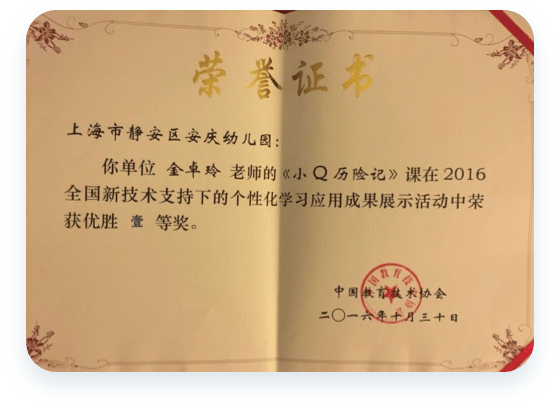 荣誉证书
上海市静安区安庆幼儿园：
你单位 金卓玲 老师的《小Q历险记》课在2016
全国新技术支持下的个性化学习应用成果展示活动中荣
获优胜 壹 等奖。
中国教育技术协会
二〇一六年十月三十日